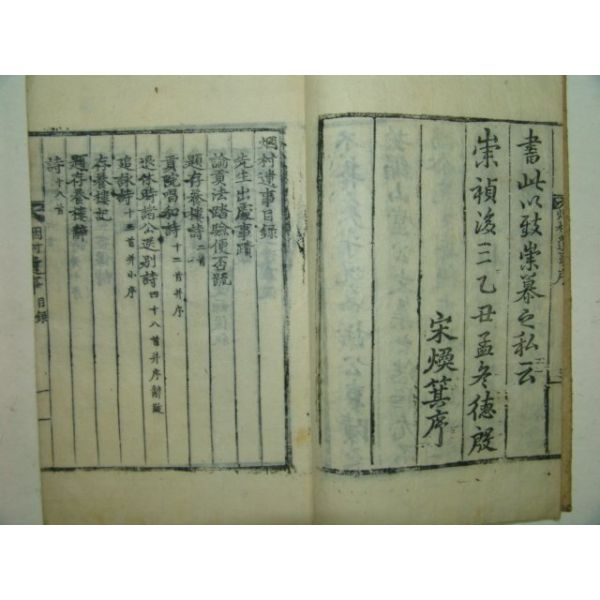 書此以致崇慕之私云
崇禎後三乙丑孟冬德殷
宋煥箕序
烟村遺事目錄
先生出處事蹟
論貢法踏驗便否議
題存養樓詩二首
貢院唱和詩十二首并序
退休時諸公送別詩四十八首并序
追詠詩十三首并小序
存養樓記
題存養樓詩
詩九八首
烟村遺事 目錄